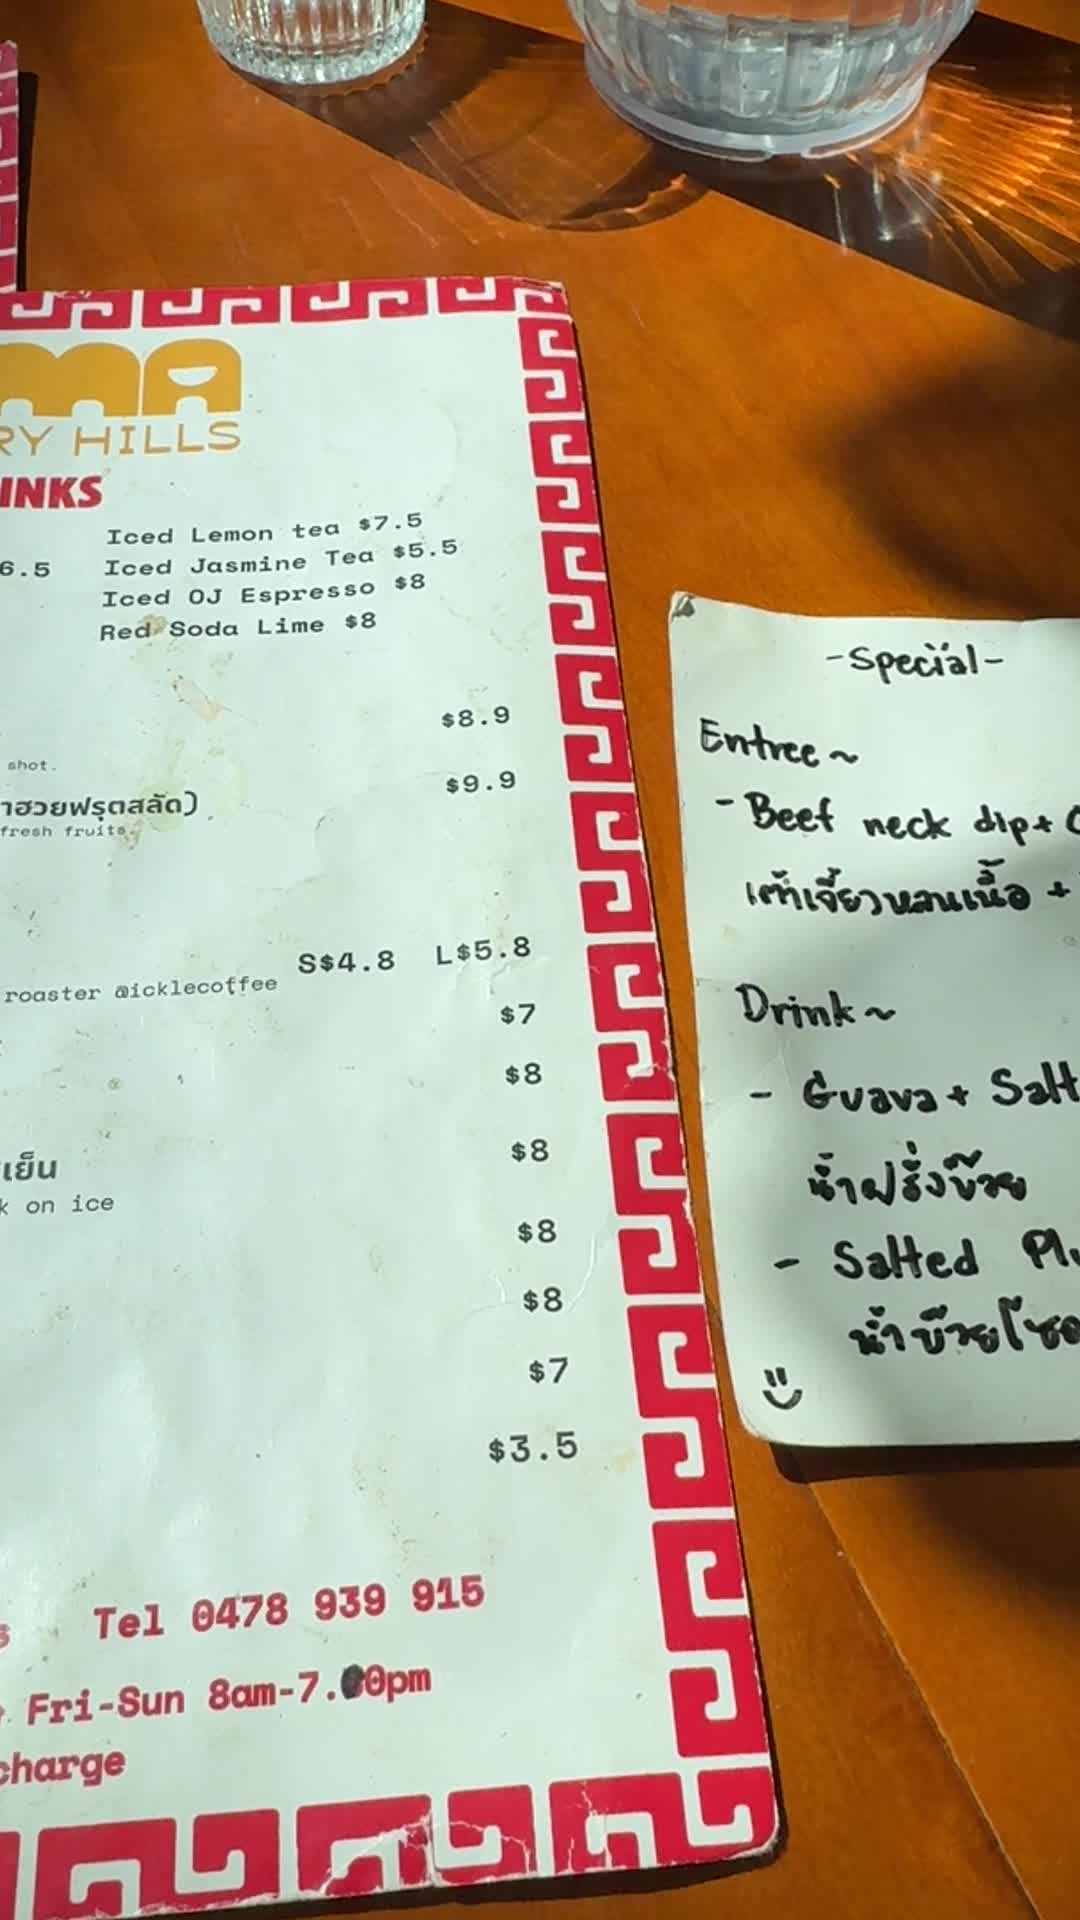 MA
RY HILLS
INKS
Iced Lemon tea $7.5
6.5 Iced Jasmine Tea $5.5
Iced OJ Espresso $8
Red Soda Lime $8
$8.9
shot.
$9.9
าฮวยฟรุตสลัด)
fresh fruits.
S$4.8 L$5.8
roaster @icklecoffee
$7
$8
$8
เย็น
k on ice
$8
$8
$7
$3.5
s Tel 0478 939 915
Fri-Sun 8am-7.00pm
charge
-Special-
Entree~
- Beef neck dip+
เต้าเจี้ยวหลนเนื้อ +
Drink~
- Guava + Salt
น้ำฝรั่งบ๊วย
- Salted Plu
น้ำบ๊วยโซ